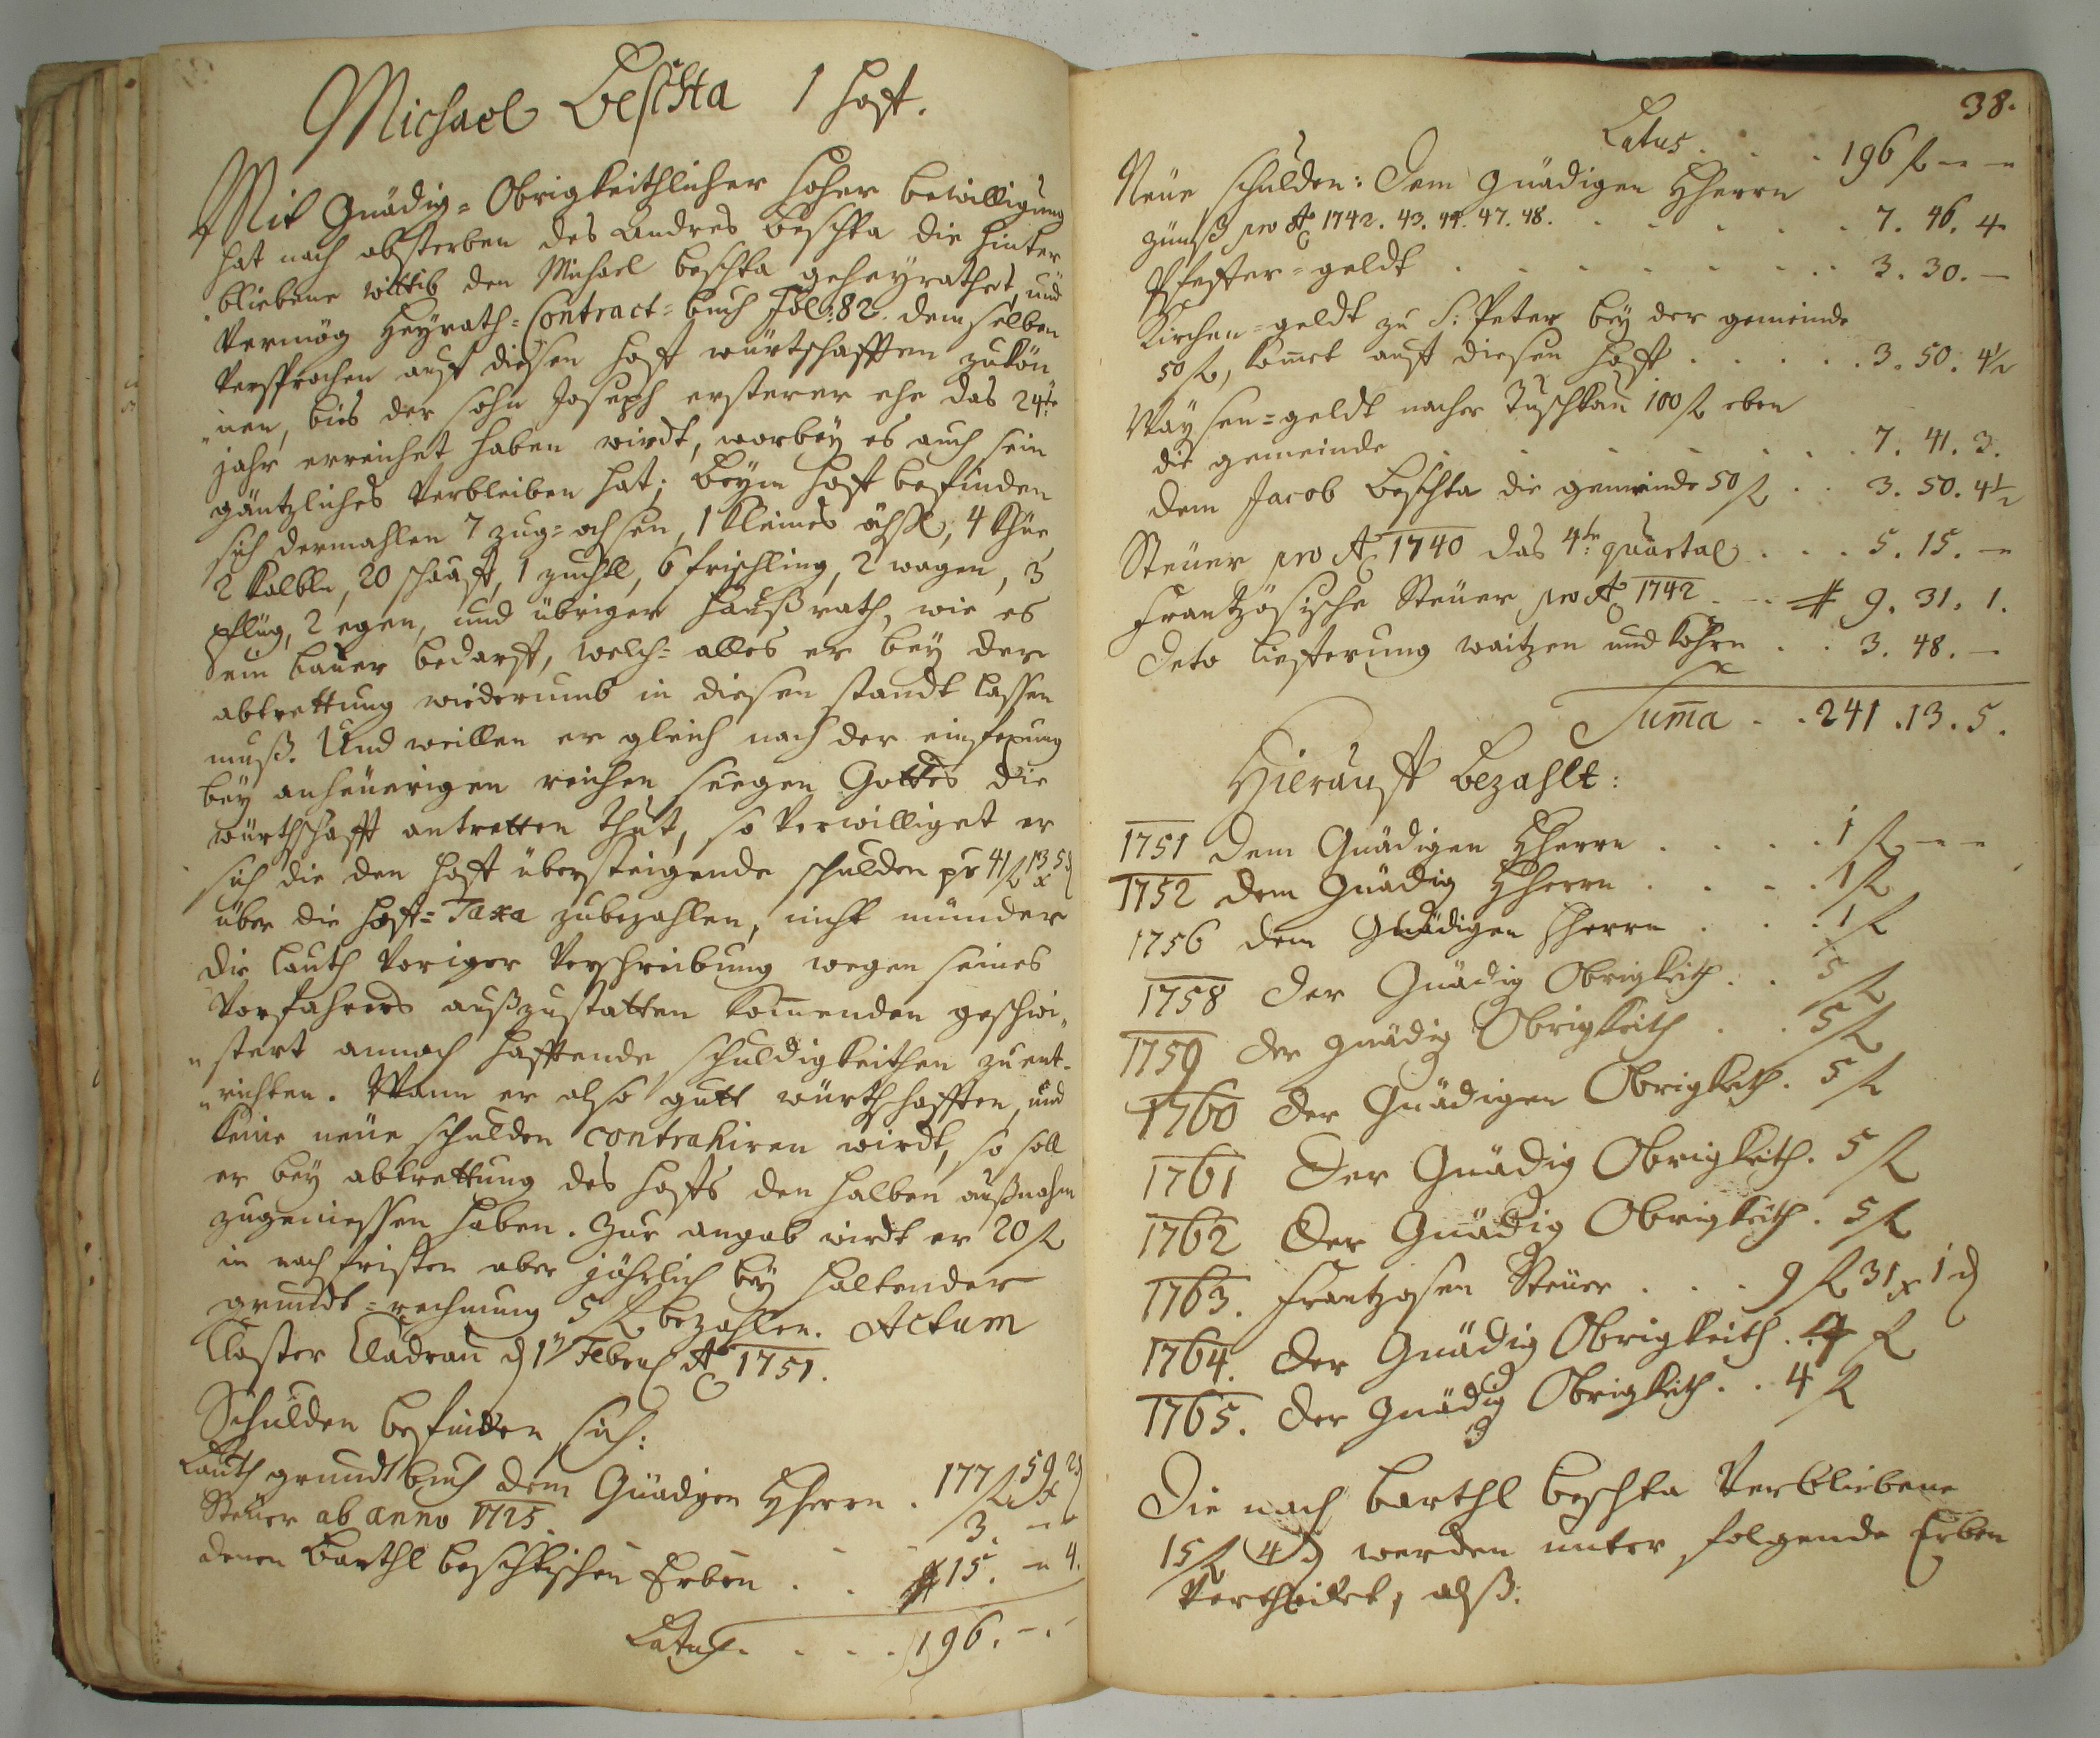 Michael Beschta 1 Hoff.
Mit Gnädig=Obrigkeithlicher hoher bewilligung
hat nach absterben des Andres Beschta die hinter
bliebene wittib den Michael beschta geheyrathet, und
Vermög Heyrath=Contract=buch Fol: 82. demselben
Versprochen auff diesen hoff würtschafften zukön
"nen, bies der sohn Joseph ersterer ehe das 24te
jahr erreichet haben wirdt, worbey es auch sein
gäntzliches Verbleiben hat; Beym hoff befinden
sich dermahlen 7 zug=ochsen, 1 kleines öchsl, 4 Khüe,
2 kalbln, 20 schaaff, 1 zuchtl, 6 frischling, 2 wagen, 3
pflüg, 2 egen, und übriger haußrath, wie es
ein bauer bedarff, welch=alles er bey der
abtrettung wiederumb in diesen standt lassen
muß. Und weillen er gleich nach der einfexung
bey anheüerigen reichen seegen Gottes die
würthschafft antretten thut, so Verwilliget er
sich die den hoff übersteigende schulden pr 41 fl 13 x 5 d
über die hoff=Taxa zubezahlen, nicht münder
die lauth Voriger Verschreibung wegen seines
Vorfahrers außzustatten kom̄enden geschwi„
"stert annoch hafftende schuldigkeithen zuent=
"richten. Wann er also gutt würthschafften, und
keine neüe schulden contrahiren wirdt, so soll
er bey abtrettung des hoffs den halben außnahm
zugeniessen haben. Zur angab wirdt er 20 fl
in nachfristen aber jährlich bey haltender
grundt=rechnung 5 fl bezahlen. Actum
Closter Cladrau d 1 Febru Ao 1751.
Schulden befinden sich:
Lauth grundtbuch dem Gnädigen Hherrn . 177 fl 59 x 2 d
Steüer ab anno 1725. 3. — —
denen Barthl beschtischen Erben . . # 15. — 4.
Latus. . . . . 196. —. —
38.
Latus. . . . 196 fl — —
Neüe schulden: Dem Gnädigen Hherrn
zünß pro Ao 1742. 43. 44. 47. 48. . . . . . 7. 46. 4
Pfeffer=geldt . . . . . . . . 3. 30. —
Kirchen=geldt zu S: Peter bey der gemeinde
50 fl, kom̄et auff diesen hoff . . . . . . 3. 50. 4½
Waysen=geldt nacher Tuschkau 100 fl eben
die gemeinde . . . . . . . 7. 41. 3.
dem Jacob Beschta die gemeinde 50 fl . . 3. 50. 4½
Steüer pro Ao 1740 das 4te quartal . . . 5. 15. —
Frantzösische Steüer pro Ao 1742 . — # 9. 31. 1.
Deto lieferung waitzen und kohrn . . 3. 48. —
Sum̄a . . 241 . 13 . 5.
Hierauff bezahlt:
1751 dem Gnädigen Hherrn . . . . 1 fl — —
1752 dem Gnädig Hherrn . . . . 1 fl
1756 dem Gnädigen Hherrn . . . 1 fl
1758 der Gnädig Obrigkeith . . 5 fl
1759 der gnädig Obrigkeith . . 5 fl
1760 der Gnädigen Obrigkeith . 5 fl
1761 Der Gnädig Obrigkeith . 5 fl
1762 Der Gnädig Obrigkeith . 5 fl
1763. Frantzosen Steüer . . . 9 fl 31 x 1 d
1764. der Gnädig Obrigkeith . 4 fl
1765. der Gnädig Obrigkeith . . 4 fl
Die nach Barthl Beschta Verbliebene
15 fl 4 d werden unter folgende Erben
Vertheilet, alß: